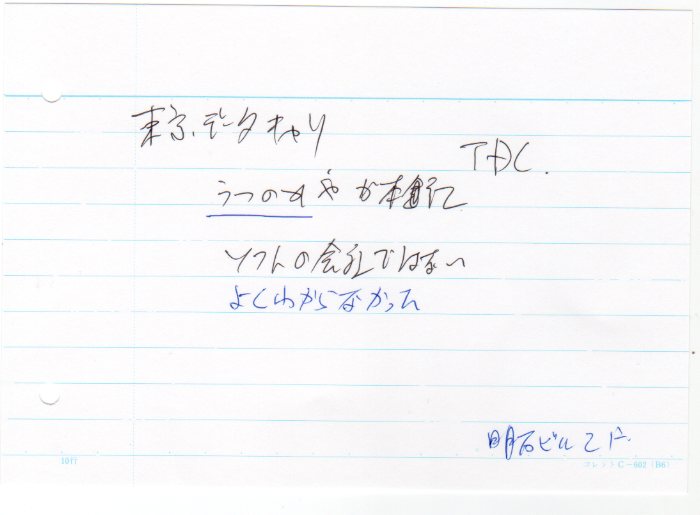 東京データキャリ
TDC.
うつのみやが本
ソフトの会社ではない
よくわからなかった
明石ビル 2F
10行
コレクトC-602(B6)